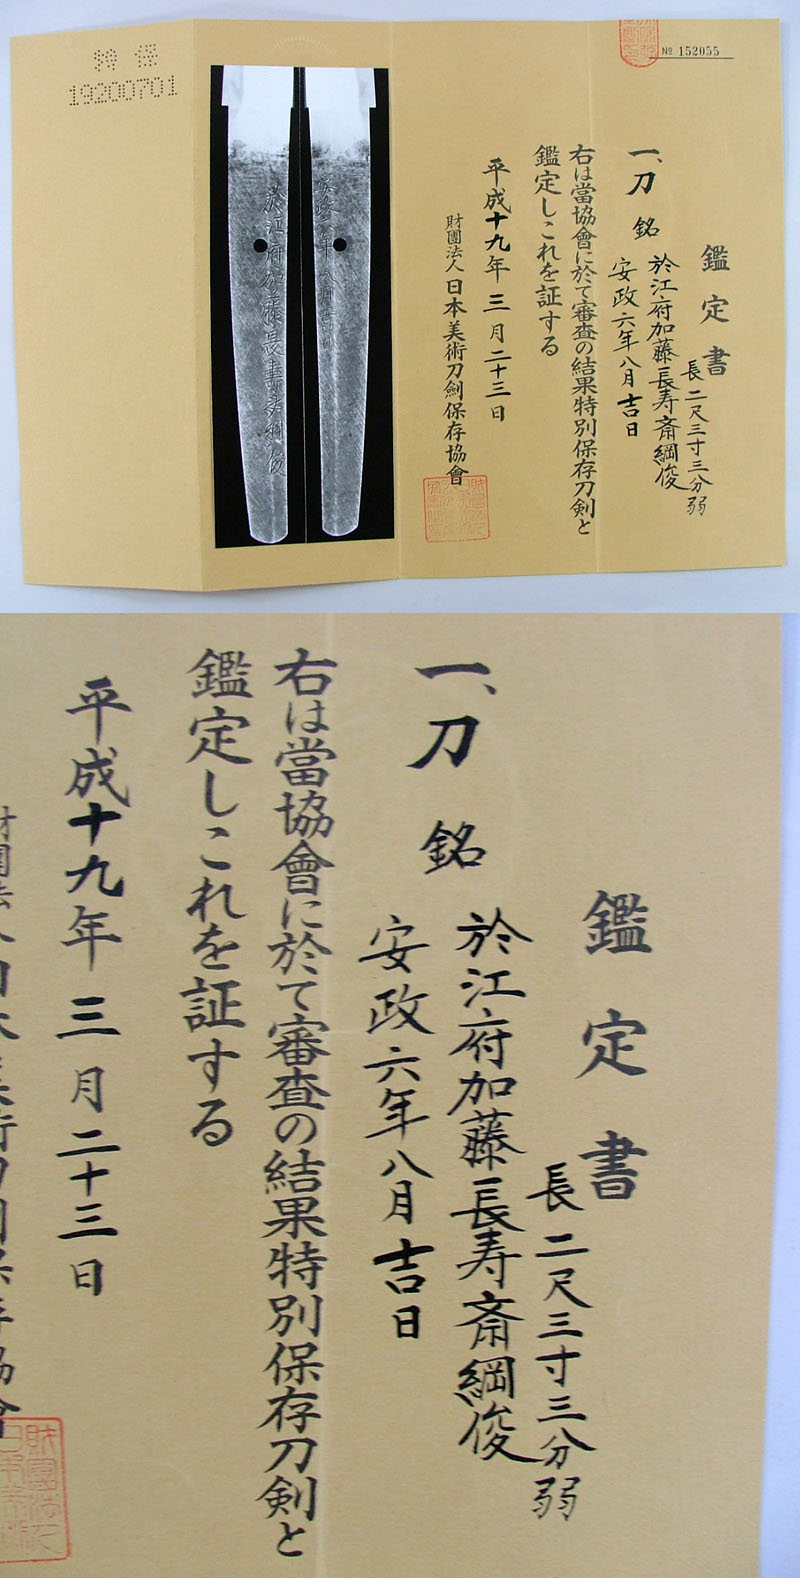 特保
19200701
№ 152055
鑑定書
長二尺三寸三分弱
一、刀 銘 於江府加藤長寿斎綱俊
安政六年八月吉日
右は當協會に於て審査の結果特別保存刀剣と
鑑定しこれを証する
平成十九年三月二十三日
財團法人日本美術刀劍保存協會
鑑定書
長二尺三寸三分弱
一、刀 銘 於江府加藤長寿斎綱俊
安政六年八月吉日
右は當協會に於て審査の結果特別保存刀剣と
鑑定しこれを証する
平成十九年三月二十三日